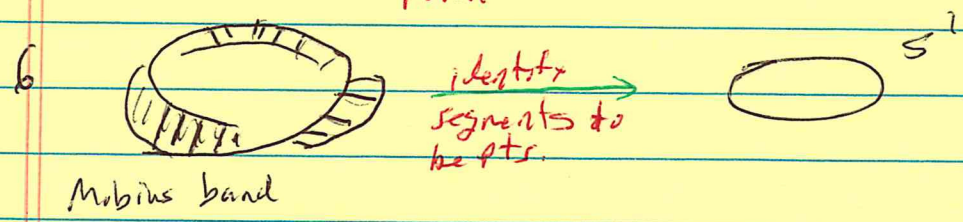 6
identity
segments to
be pts.
S¹
Mobius band